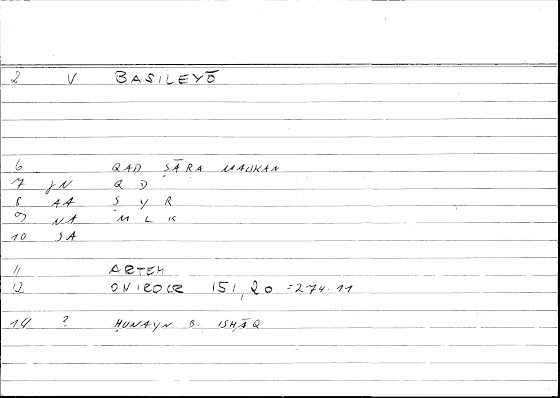 2 V BASILEYŌ
6 QAD SĀRA MALIKAN
7 JN Q D
8 AA S Y R
9 NA M L K
10 SA
11 ARTEM
12 ONIROCR 151,20 =274.11
14 ? ḤUNAYN B. ISḤĀQ